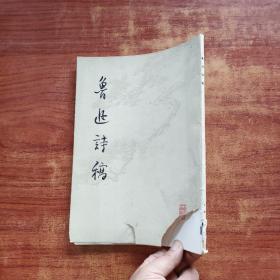 鲁迅詩稿